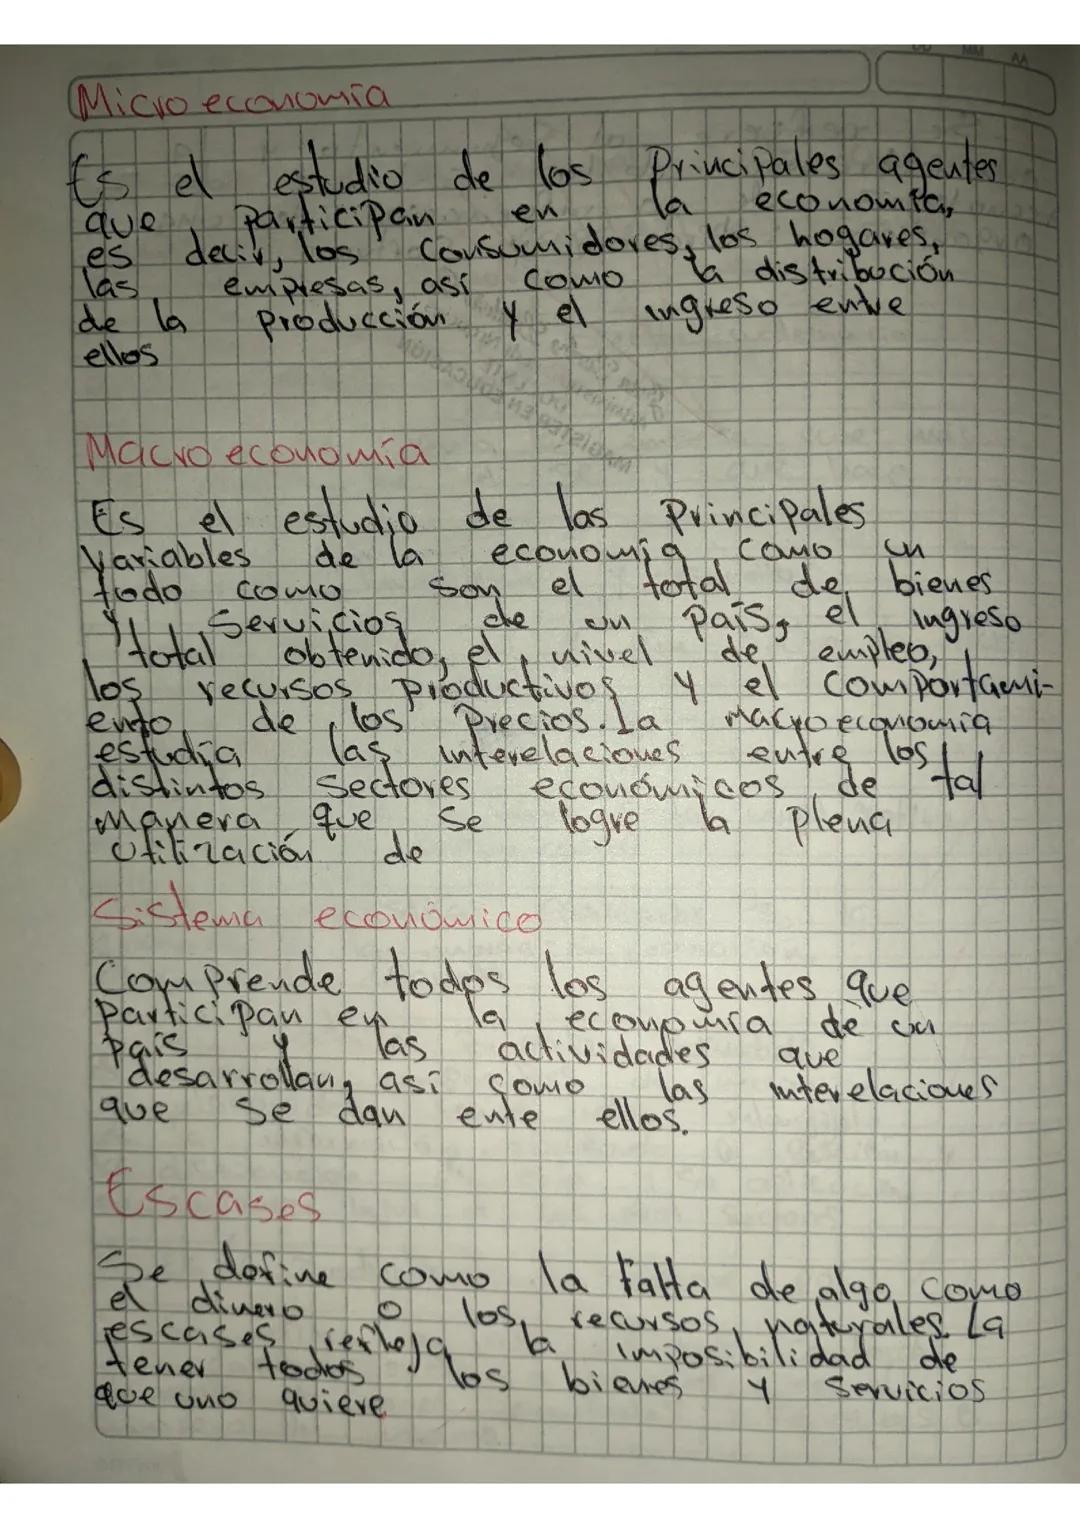 Microeconomía
Es el estudio de los Principales agentes
que participan en la economía,
es decir, los consumidores, los hogares,
las empresas, así como la distribución
de la producción y el ingreso entre
ellos
MAGISTER EN EDUCACIÓN
Macroeconomía
Es el estudio de las Principales
Variables de la economía, como un
todo como son el total de bienes
y Servicios de un País, el ingreso
total obtenido, el nivel de empleo,
los recursos productivos y el comportami-
ento de los Precios. La Macroeconomía
estudia las interelaciones entre los
distintos sectores económicos, de tal
manera que se logre la plena
utilización de
Sistema económico
Comprende todos los agentes que
participan en la economía de un
país y las actividades que
desarrollan, así como las interelaciones
que se dan ente ellos.
Escases
Se define como la falta de algo, como
el dinero o los recursos naturales. La
escases refleja la imposibilidad de
tener todos los bienes y servicios
que uno quiere